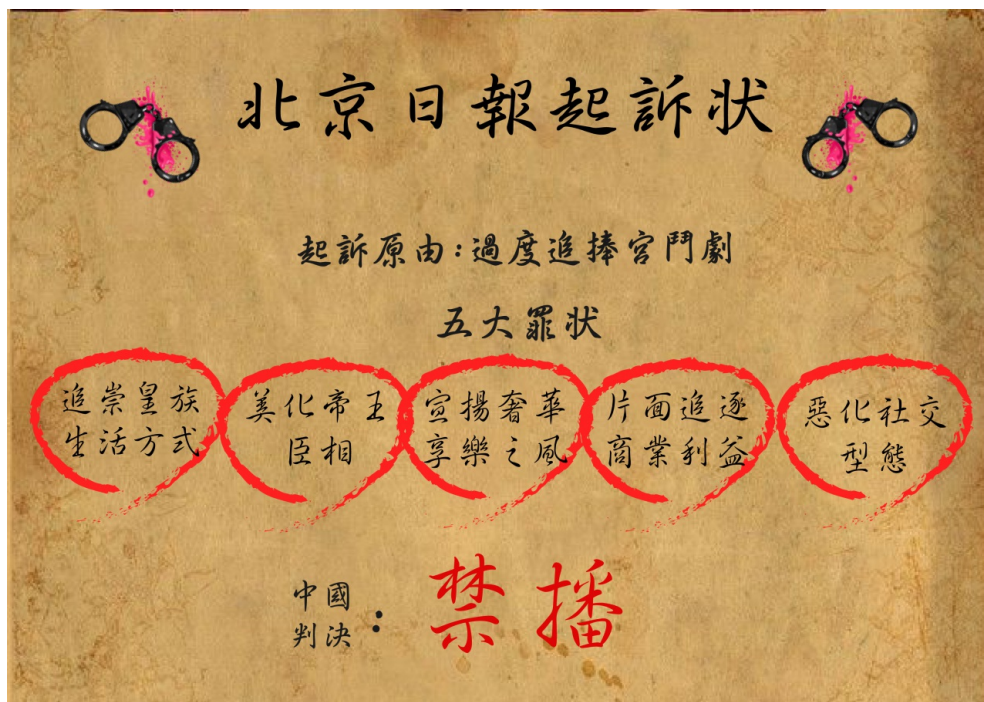 北京日報起訴狀
起訴原由:過度追捧宮鬥劇
五大罪狀
追崇皇族
生活方式
美化帝王
臣相
宣揚奢華
享樂之風
片面追逐
商業利益
惡化社交
型態
中國
判決:
禁播